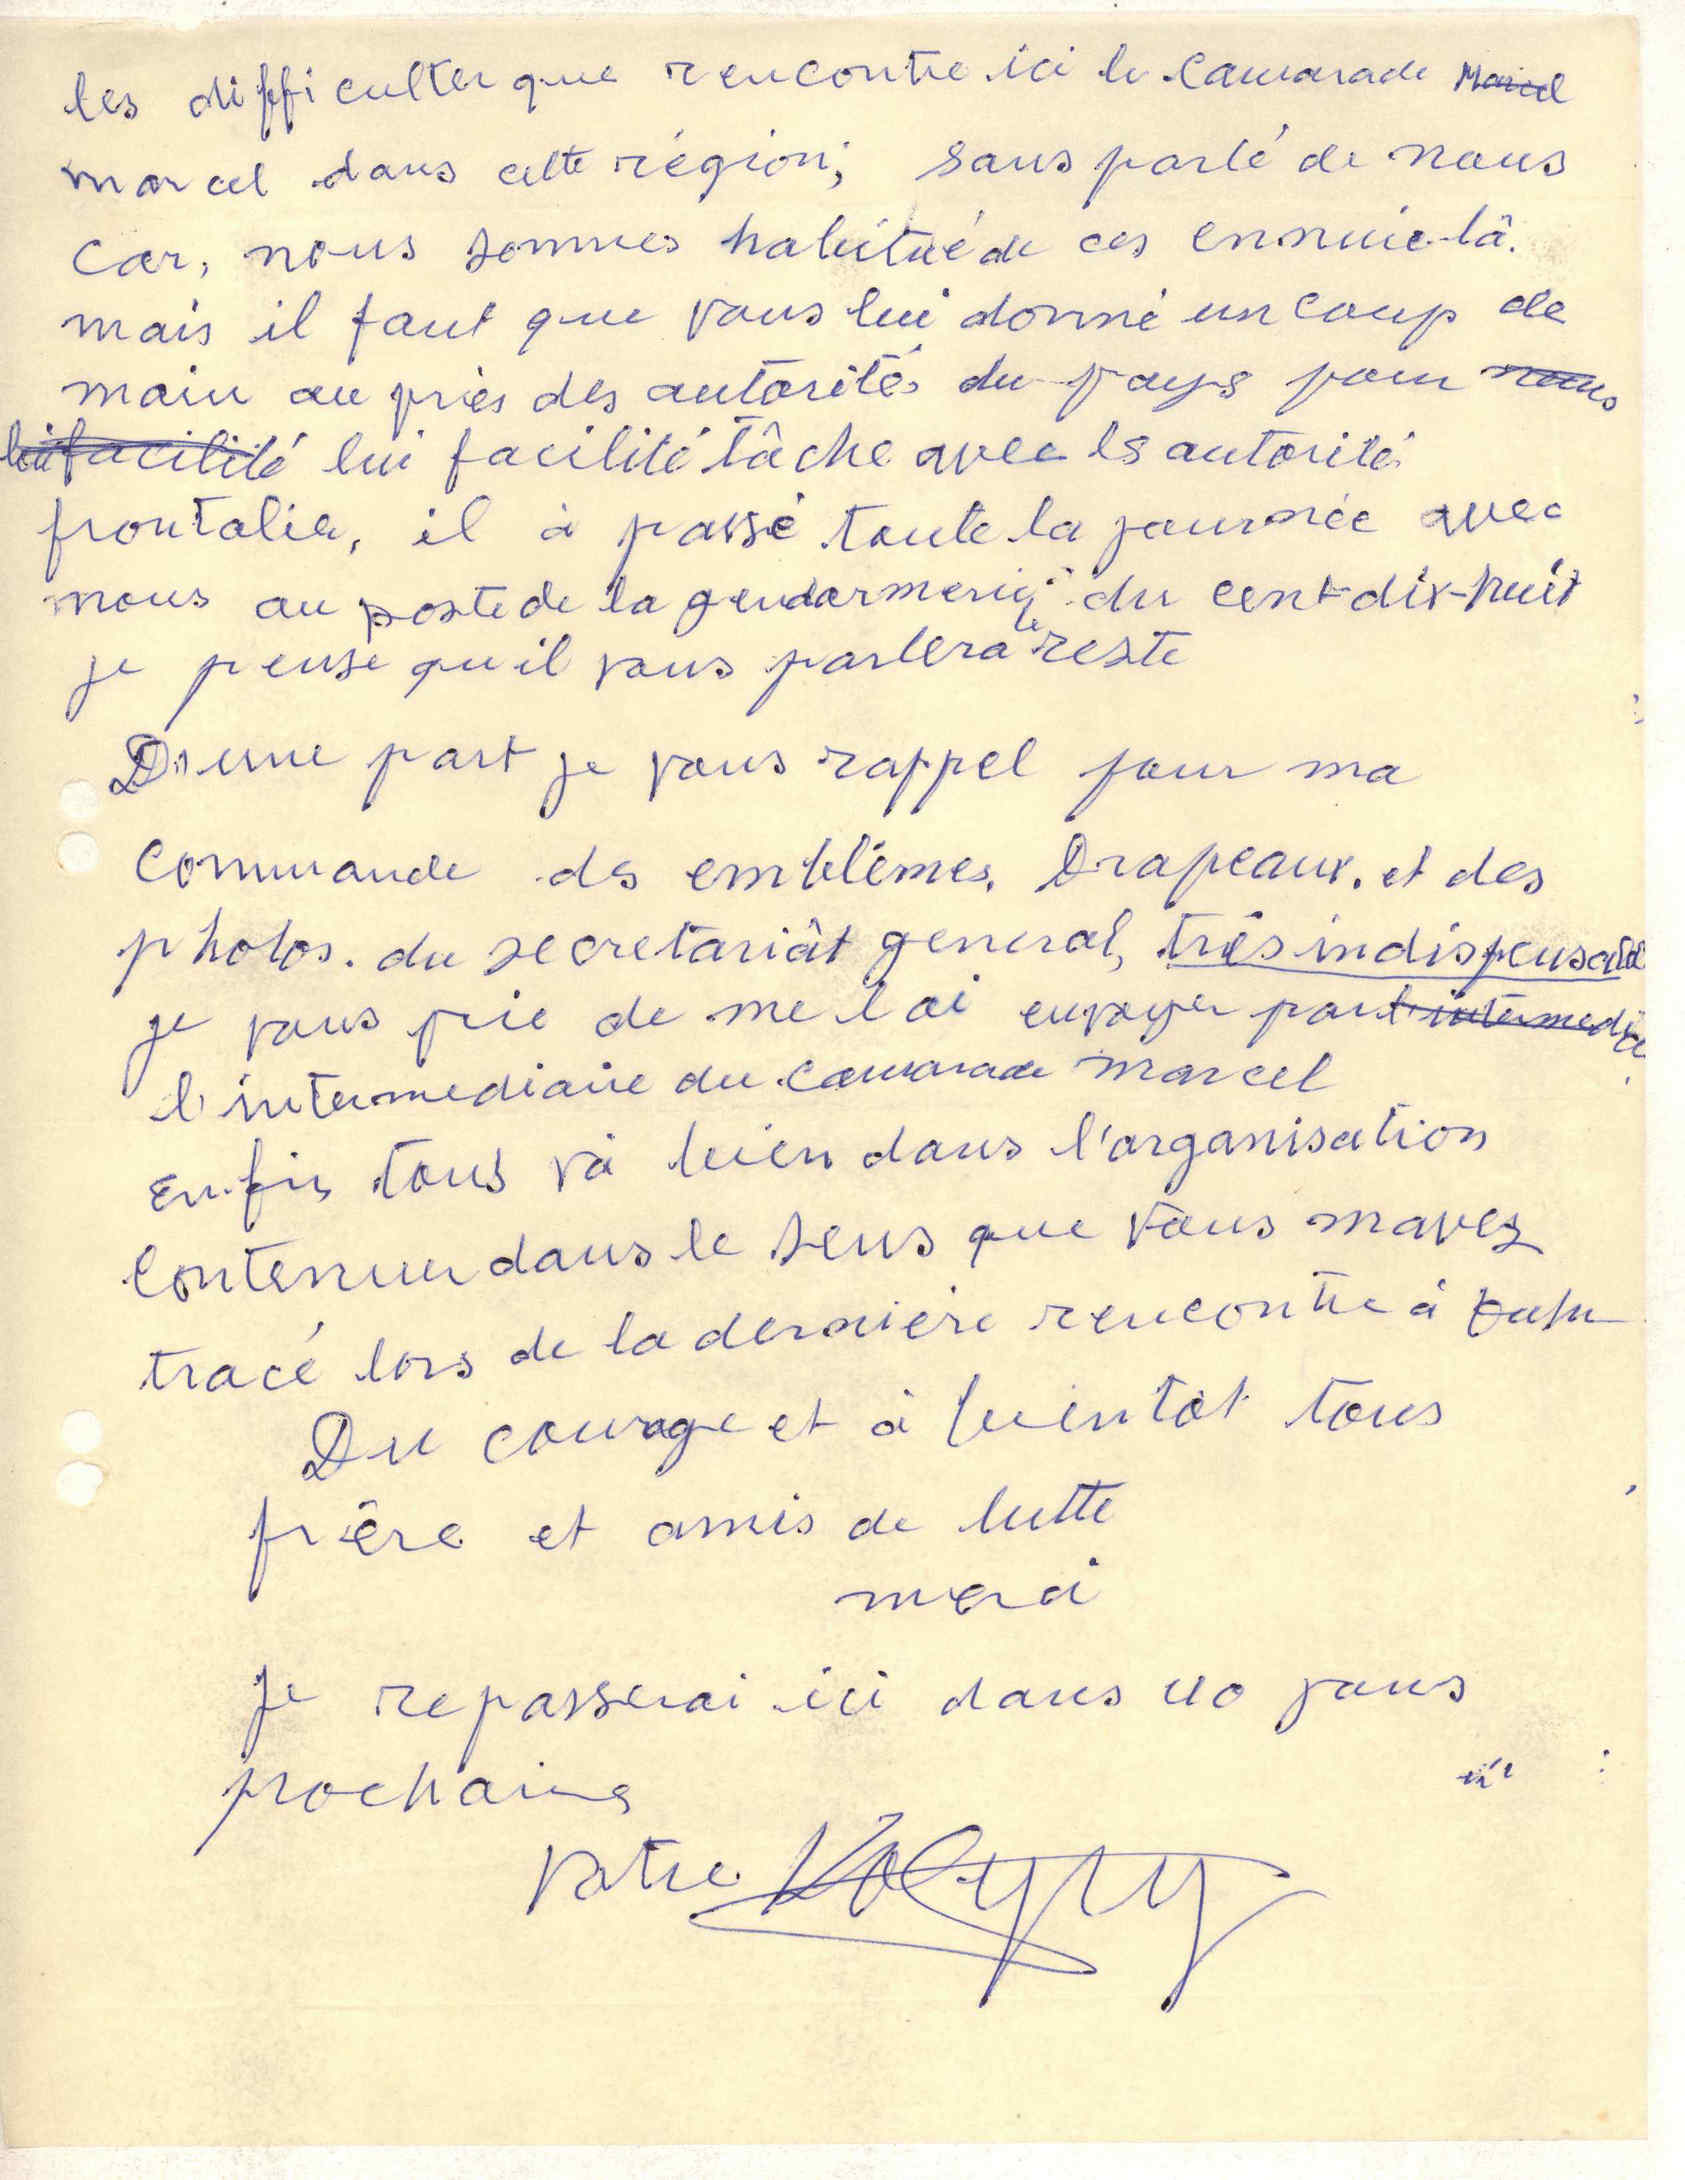 les difficulter que rencontre ici le Camarade Marcel
marcel dans cette région; sans parlé de nous
Car, nous sommes habitué de ces ennuie-là.
mais il faut que vous lui donné un coup de
main au près des autorités du pays pour nous
lui facilité lui facilité tâche avec ls autorité
frontalier, il à passé toute la journée avec
nous au poste de la gendarmerie du cent-dix-huit
je pense qu'il vous parlera le reste
D'une part je vous rappel pour ma
Commande ds emblêmes. Drapeaux. et des
photos. du secretariât general, très indispensable
je vous prie de me l'ai envoyer part intermediaire
l'intermediaire du Camarade marcel
enfin tous và bien dans l'organisation
Contenue dans le sens que vous mavez
tracé lors de la dernière rencontre à
Du courage et à bientôt tous
frère et amis de lutte
merci
Je repasserai ici dans jours
prochains
Votre